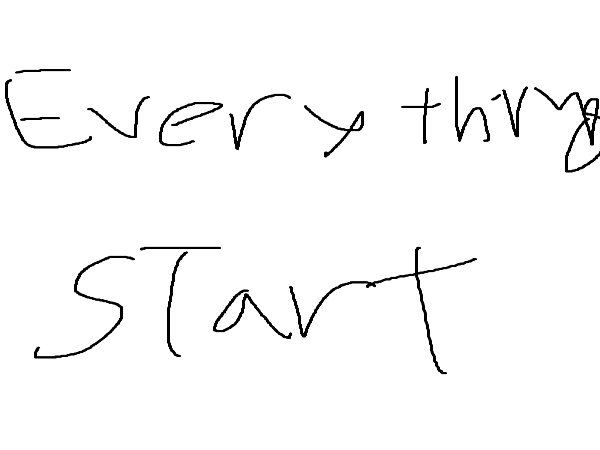 Every thing
start